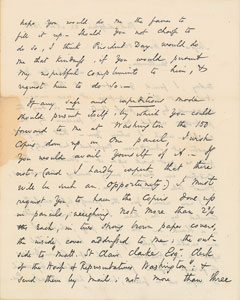 hope you would do me the favor to
fill it up. Should you not choose to
do so, I think President Day would do
me that kindness, if you would present
my respectful compliments to them, &
request him to do so.—
If any safe and expeditious mode
should present itself, by which you could
forward to me at Washington the 150
Copies done up in One parcel, I wish
you would avail yourself of it. — If
not, (and I hardly expect that there
will be such an opportunity) I must
request you to have the Copies done up
in parcels, weighing not more than 2
each, in two strong brown paper covers,
the inside cover addressed to me, the out-
side to Matt. St Clair Clarke Esq. Clerk
of the House of Representatives, Washington" &
send them by Mail, not more than three